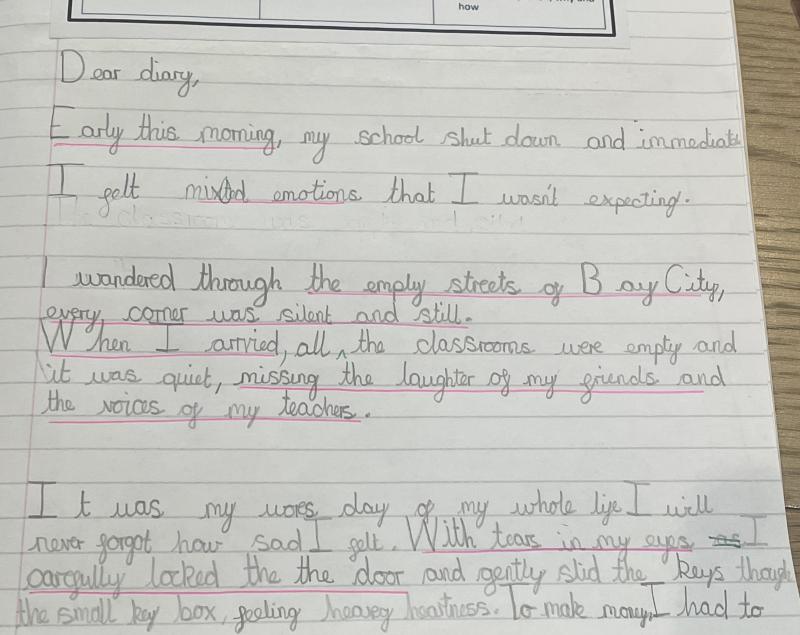 how
Dear diary,
Early this morning, my school shut down and immediate
I felt mixed emotions that I wasn't expecting.
I wandered through the empty streets of Bay City,
every corner was silent and still.
When I arrvied, all the classrooms were empty and
it was quiet, missing the laughter of my friends and
the voices of my teachers.
It was my wores day of my whole life I will
never forgot how sad I felt. With tears in my eyes I
carefully locked the the door and gently slid the keys though
the small key box, feeling heaveg heartness. To make money, I had to